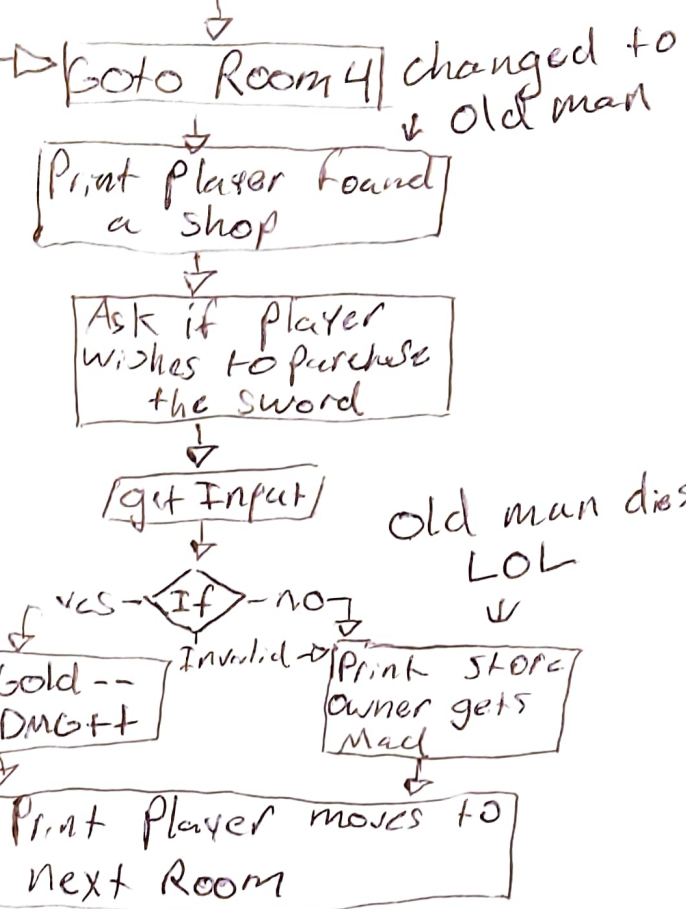 Goto Room 4
changed to
old man
Print Player found
a shop
Ask if Player
wishes to purchase
the sword
get Input
Old man dies
LOL
yes
If
no
Invalid
Gold --
DMG++
Print store
owner gets
Mad
Print Player moves to
next Room